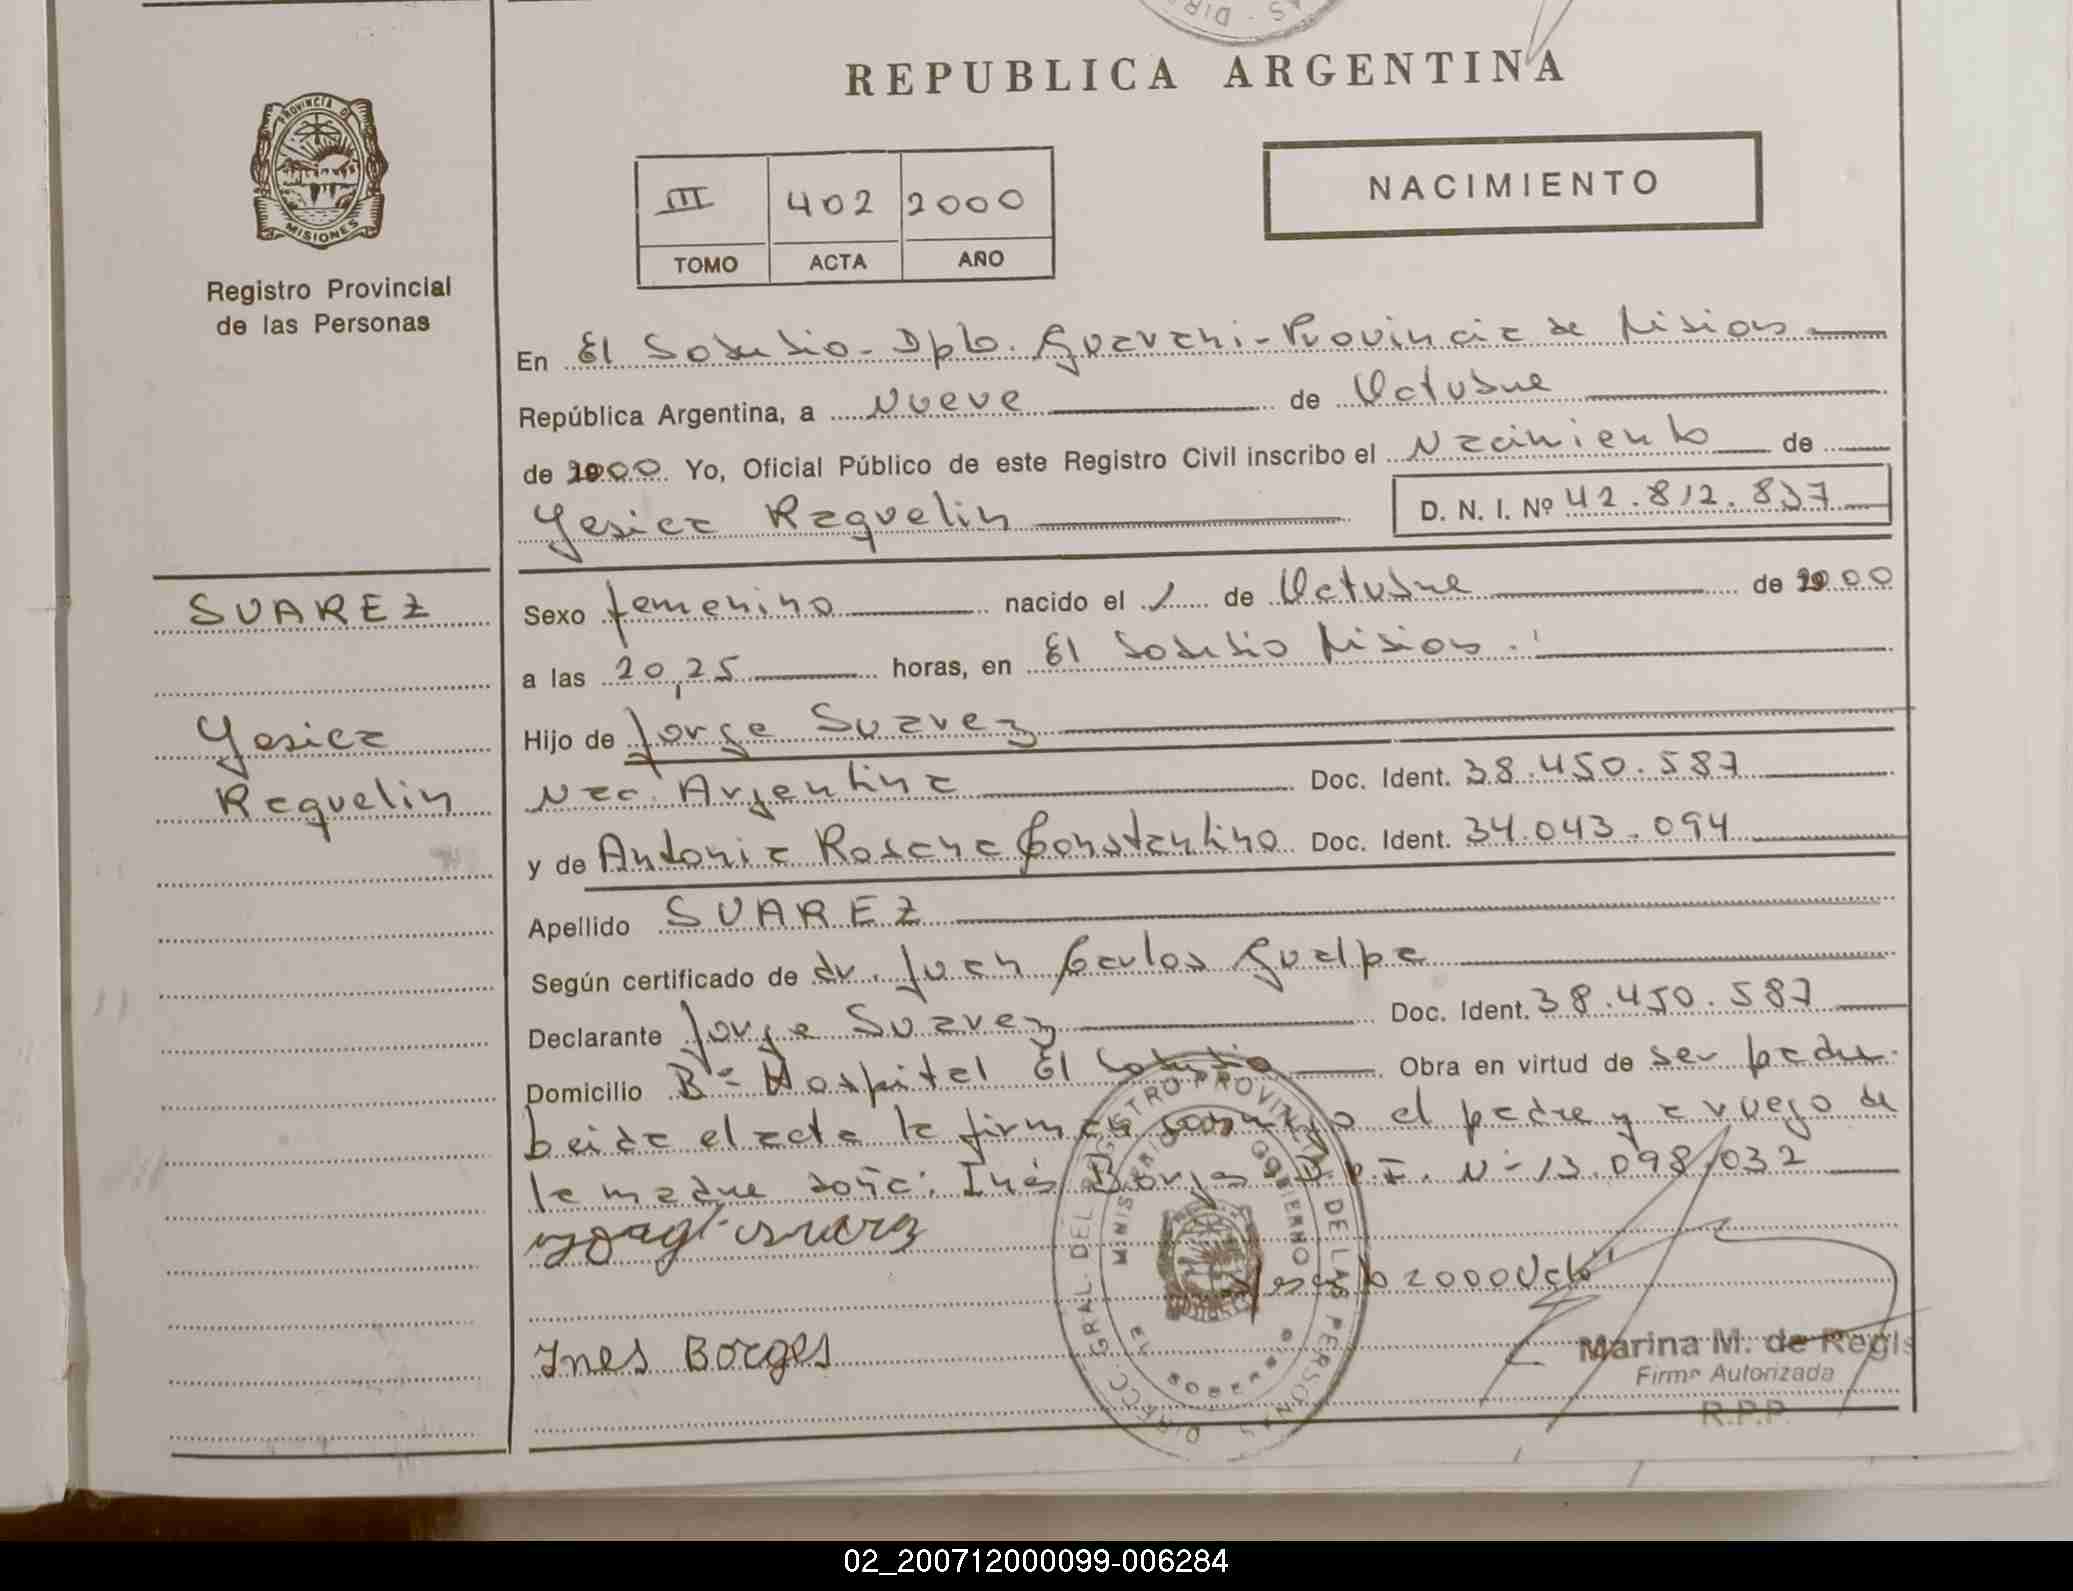 REPUBLICA ARGENTINA
PROVINCIA DE
MISIONES
Registro Provincial
de las Personas
III 402 2000
TOMO ACTA AÑO
NACIMIENTO
En El Soberbio - Dpto. Guarani - Provincia de Misiones
República Argentina, a Nueve de Octubre
de 2000 Yo, Oficial Público de este Registro Civil inscribo el Nacimiento de
Yesica Raquelin D. N. I. Nº 42.812.837
SUAREZ
Yesica
Raquelin
Sexo femenino nacido el 1 de Octubre de 2000
a las 20,25 horas, en El Soberbio Misiones
Hijo de Jorge Suarez
Nac. Argentina Doc. Ident. 38.450.587
y de Antonia Rosana Constantino Doc. Ident. 34.043.094
Apellido SUAREZ
Según certificado de dr. Juan Carlos Gualpa
Declarante Jorge Suarez Doc. Ident. 38.450.587
Domicilio Bº Hospital El Soberbio Obra en virtud de ser padre.
Leida el acta la firman conmigo el padre y a ruego de
la madre doña: Inés Borges D.N.I. Nº 13.098.032
2000
Ines Borges
DIRECC. GRAL. DEL REGISTRO PROVINCIAL DE LAS PERSONAS
MINISTERIO GOBIERNO
Marina M. de Regis
Firma Autorizada
R.P.P.
02_200712000099-006284